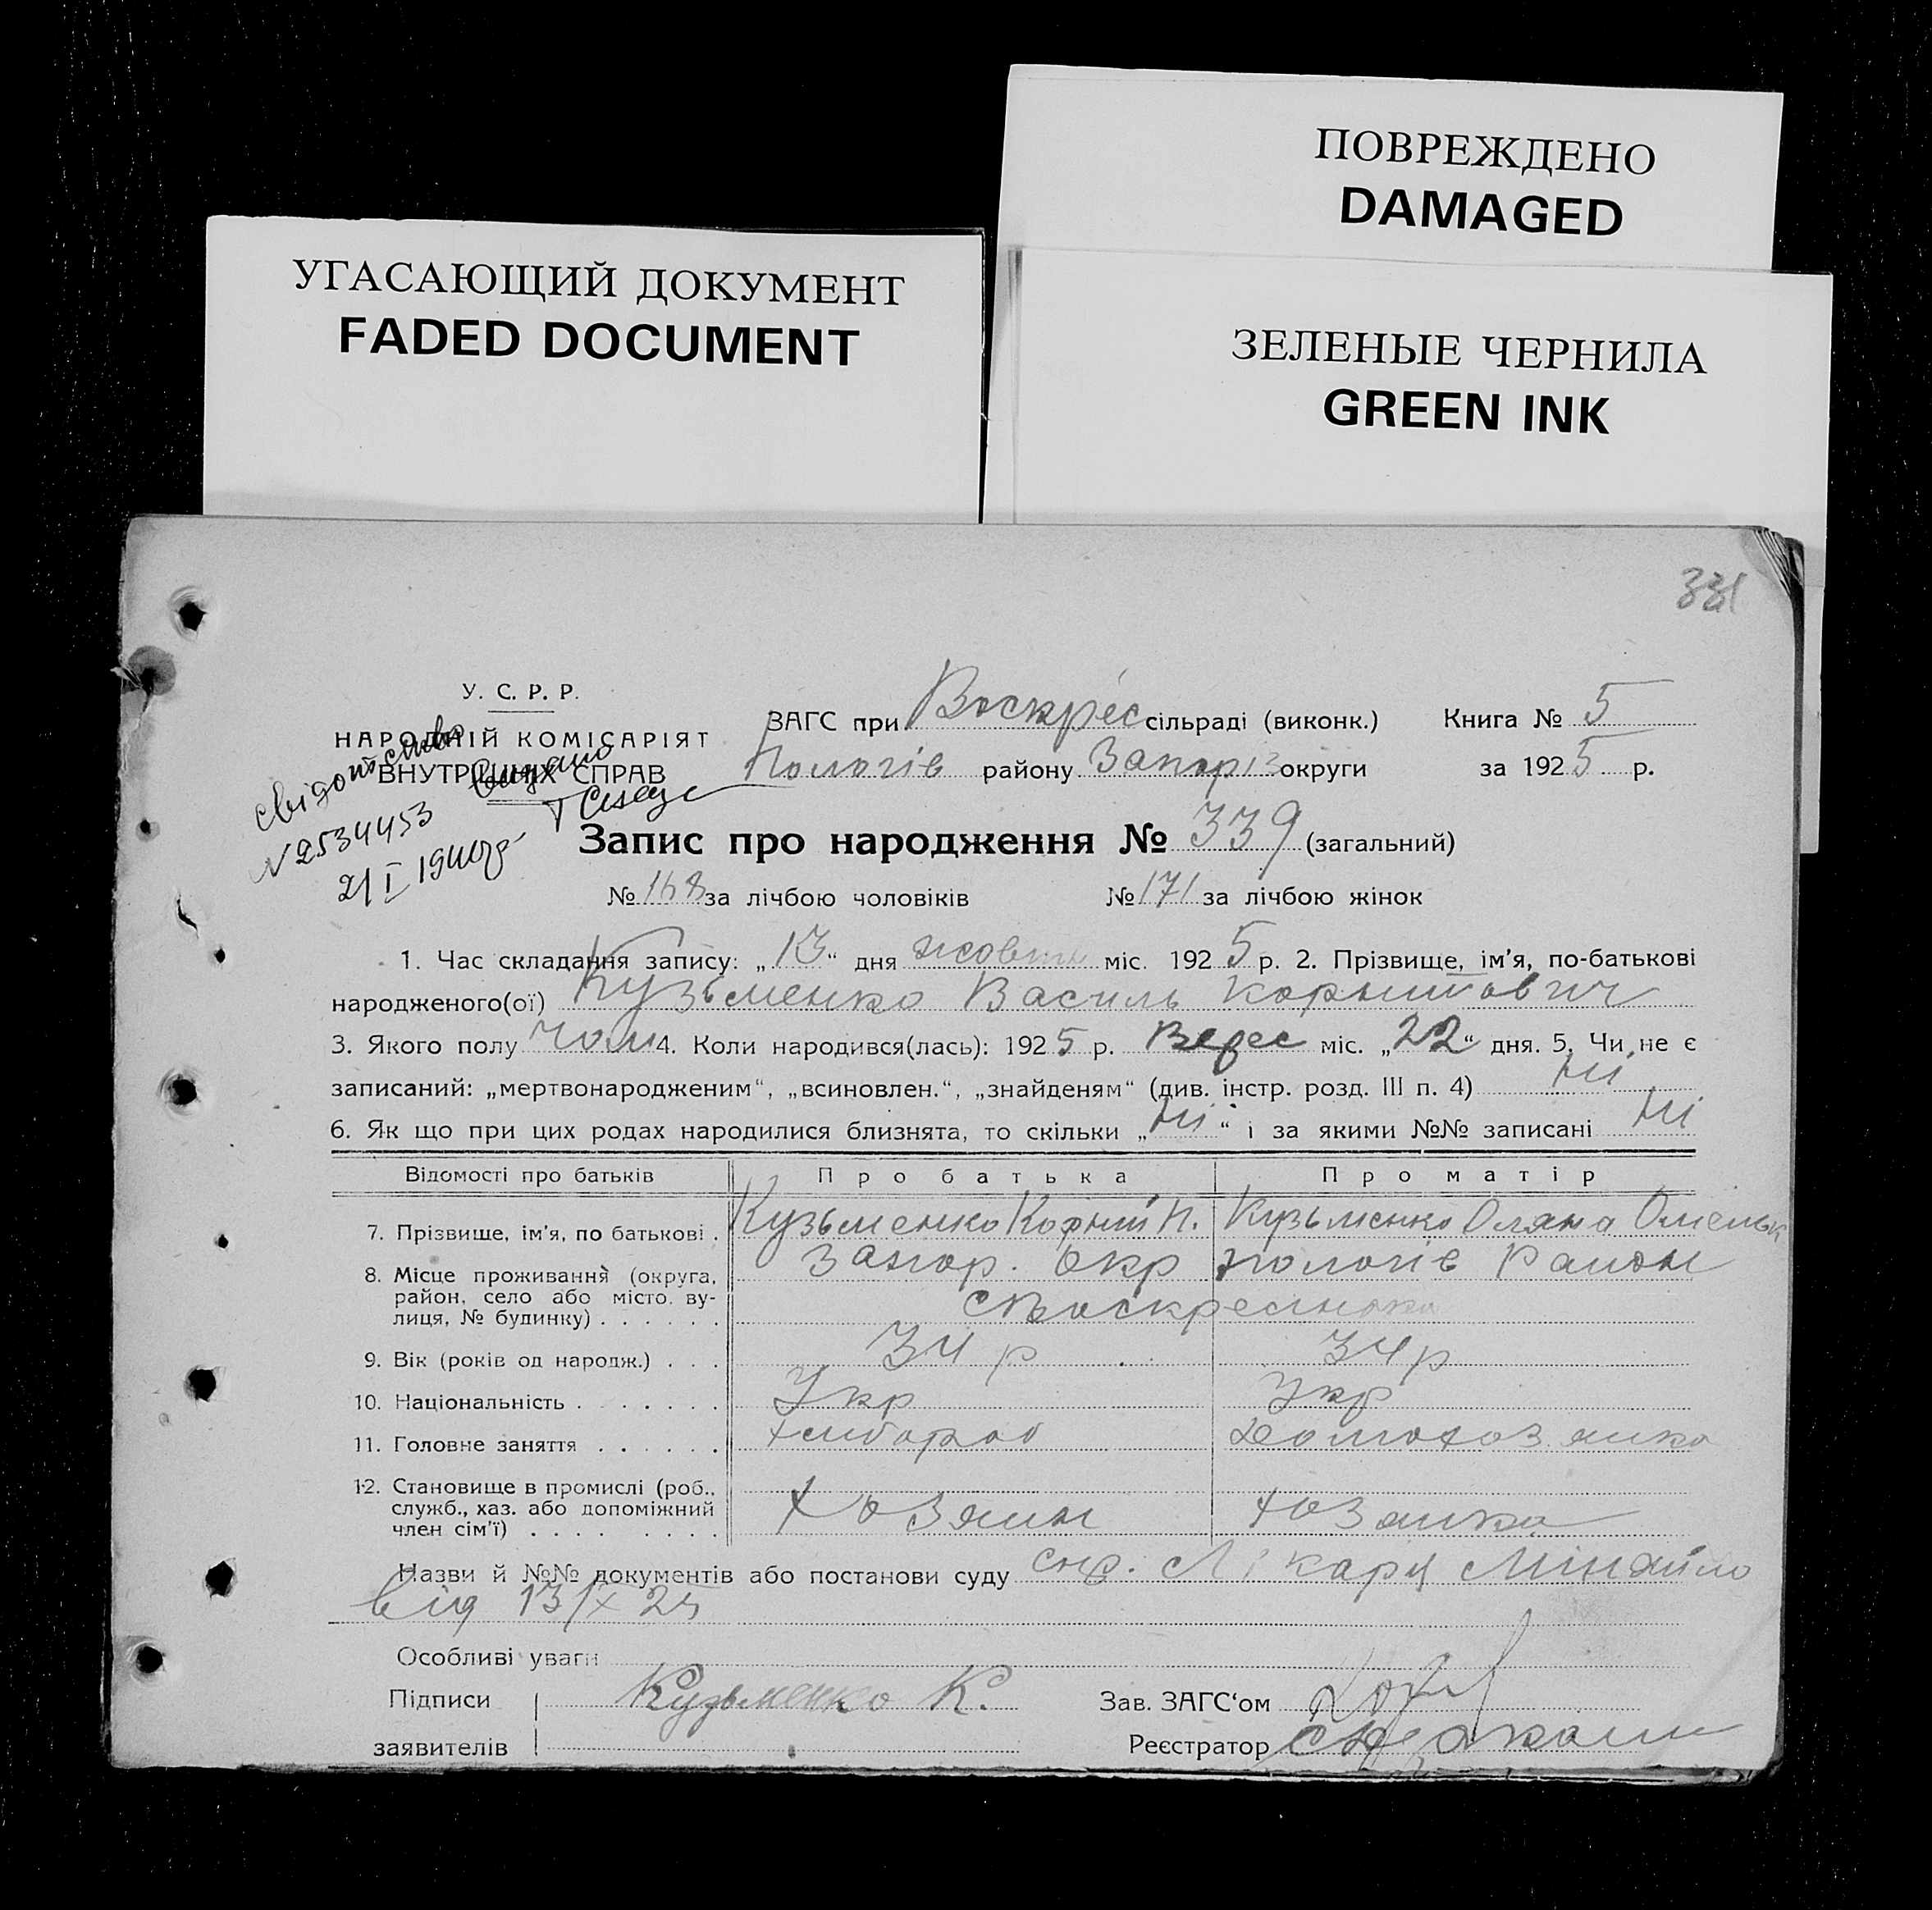 ПОВРЕЖДЕНО
DAMAGED
УГАСАЮЩИЙ ДОКУМЕНТ
FADED DOCUMENT
ЗЕЛЕНЫЕ ЧЕРНИЛА
GREEN INK
331
У. С. Р. Р.
НАРОДНІЙ КОМІСАРІЯТ
ВНУТРІШНІХ СПРАВ
свідоцтво видано
№ 2534453
21/I 1940р
ЗАГС при Воскрес сільраді (виконк.) Книга № 5
Пологів району Запоріз округи за 1925 р.
Запис про народження № 339 (загальний)
№ 168 за лічбою чоловіків № 171 за лічбою жінок
1. Час складання запису: „13“ дня жовтн міс. 1925 р. 2. Прізвище, ім’я, по-батькові
народженого(ої) Кузьменко Василь Корнийович
3. Якого полу чол 4. Коли народився(лась): 1925 р. Верес міс. „22“ дня. 5. Чи не є
записаний: „мертвонародженим“, „всиновлен.“, „знайденям“ (див. інстр. розд. III п. 4) ні
6. Як що при цих родах народилися близнята, то скільки „ні“ і за якими №№ записані ні
Відомості про батьків Про батька Про матір
7. Прізвище, ім’я, по батькові . Кузьменко Корний П. Кузьменко Оляна Омельк
8. Місце проживання (округа, район, село або місто, ву-лиця, № будинку) . . . . . . Запор. Окр Пологів Район
с Воскресенка
9. Вік (років од народж.) . . . 34 р 34 р
10. Національність . . . . . . . Укр Укр
11. Головне заняття . . . . . . хлібороб домохозяйка
12. Становище в промислі (роб., служб., хаз. або допоміжний член сім’ї) . . . . . . . . хозяин хозяйка
Назви й №№ документів або постанови суду Лікаря
від 13/X 25
Особливі уваги
Підписи Кузьменко К. Зав. ЗАГС‘ом
заявителів Реєстратор